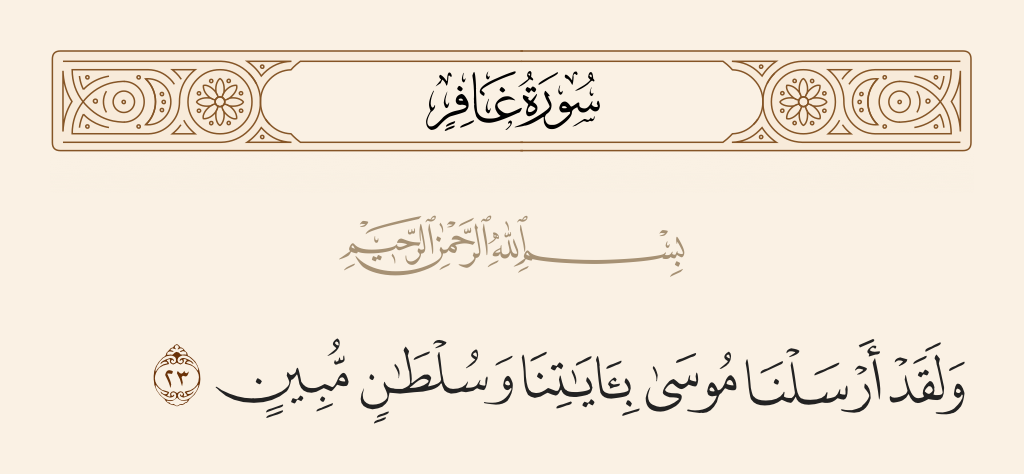 سُورَةُ غَافِرٍ
بِسْمِ ٱللَّهِ ٱلرَّحْمَٰنِ ٱلرَّحِيمِ
وَلَقَدْ أَرْسَلْنَا مُوسَىٰ بِـَٔايَـٰتِنَا وَسُلْطَـٰنٍ مُّبِينٍ ٢٣